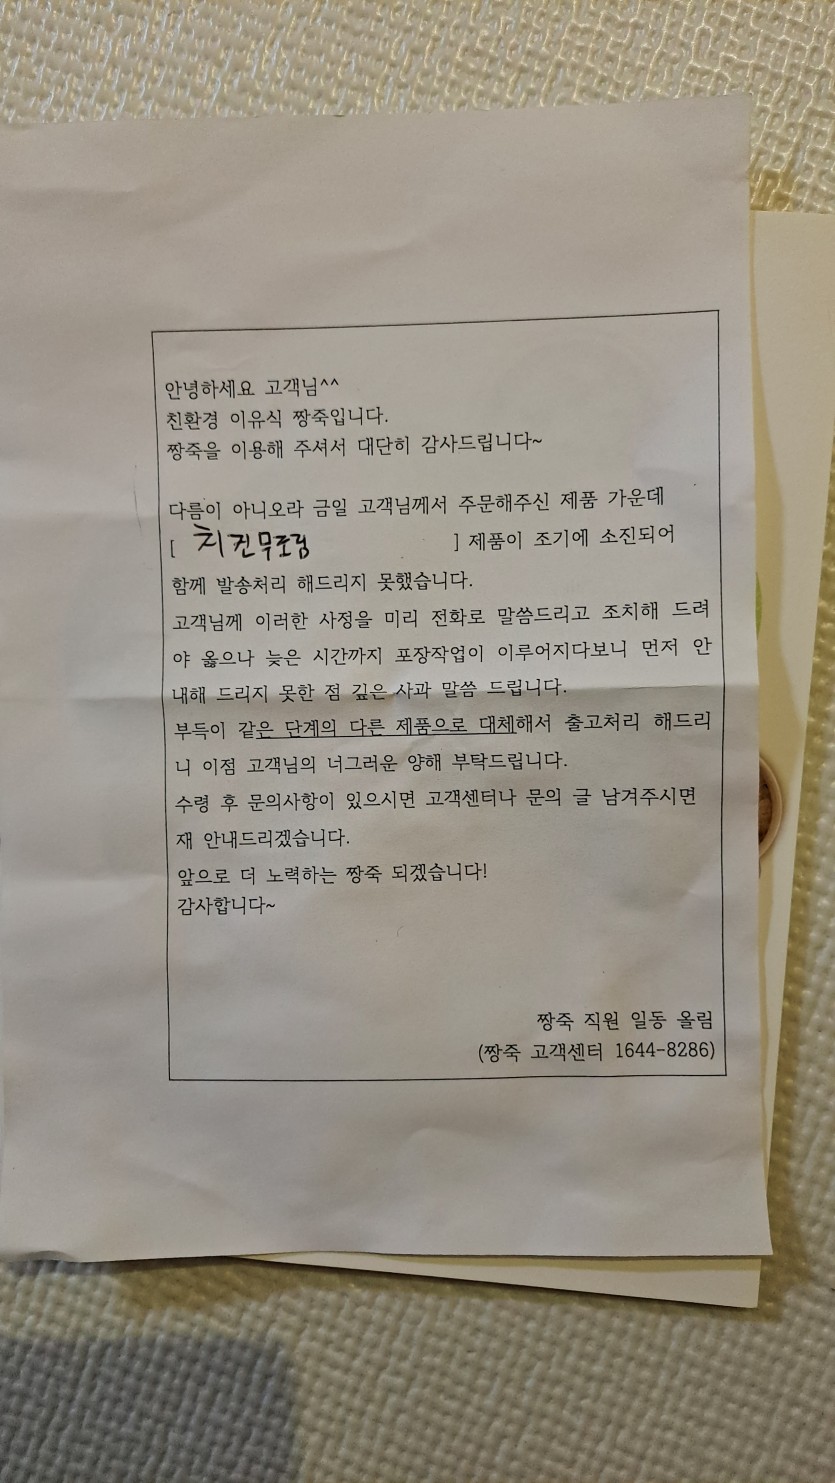 안녕하세요 고객님^^
친환경 이유식 짱죽입니다.
짱죽을 이용해 주셔서 대단히 감사드립니다~
다름이 아니오라 금일 고객님께서 주문해주신 제품 가운데
[ 치킨무조림 ] 제품이 조기에 소진되어
함께 발송처리 해드리지 못했습니다.
고객님께 이러한 사정을 미리 전화로 말씀드리고 조치해 드려
야 옳으나 늦은 시간까지 포장작업이 이루어지다보니 먼저 안
내해 드리지 못한 점 깊은 사과 말씀 드립니다.
부득이 같은 단계의 다른 제품으로 대체해서 출고처리 해드리
니 이점 고객님의 너그러운 양해 부탁드립니다.
수령 후 문의사항이 있으시면 고객센터나 문의 글 남겨주시면
재 안내드리겠습니다.
앞으로 더 노력하는 짱죽 되겠습니다!
감사합니다~
짱죽 직원 일동 올림
(짱죽 고객센터 1644-8286)